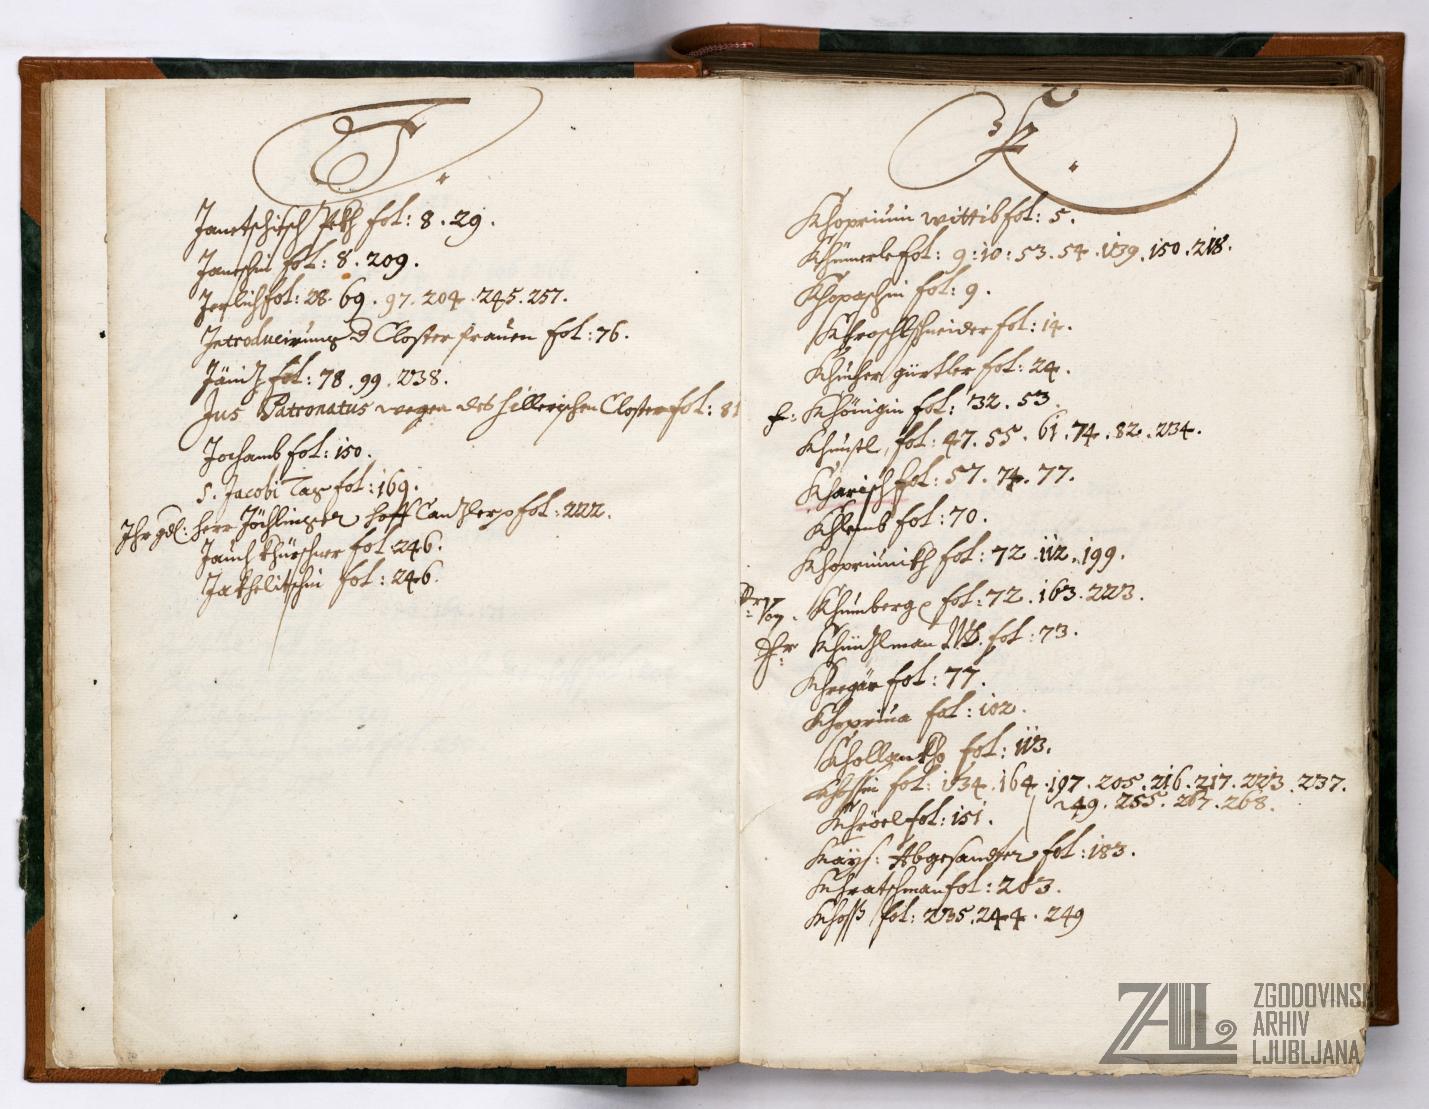 J
Janetschitsch Pekh fol: 8. 29.
Janeschin fol: 8. 209.
Jerlich fol: 28. 69. 97. 204. 245. 257.
Introducirung d Closter frauen fol: 76.
fol: 78. 99. 238.
Jus Patronatus wegen des Closter fol: 81
Jochamb fol: 150.
S. Jacobi Tag fol: 169.
Ihr gdl: herr Jöchlinger hoff Canzler fol: 222.
Jauch khürschner fol 246.
Jakhelitschin fol: 246.
K
Khopriuin wittib fol: 5.
Khümerle fol: 9: 10: 53. 54. 139. 150. 218.
Khopaschin fol: 9.
Khroschlschneider fol: 14.
Khuher gürtler fol: 24.
f: Khönigin fol: 32. 53.
Khunstl fol: 47. 55. 61. 74. 82. 234.
Kharisch fol: 57. 74. 77.
Khlemb fol: 70.
Khopriunikh fol: 72. 112. 199.
Khumberg fol: 72. 163. 223.
Khünzlman fol: 73.
Khregär fol: 77.
Khopriua fol: 102.
Khollankho fol: 113.
Khossin fol: 134. 164. 197. 205. 216. 217. 223. 237.
249. 255. 267. 268.
Khröel fol: 151.
Kays: Abgesandter fol: 183.
Khratschman fol: 203.
Khoss fol: 235. 244. 249
ZAL ZGODOVINSKI
ARHIV
LJUBLJANA